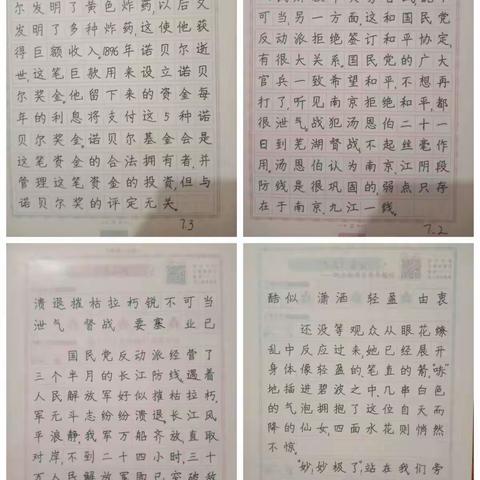 尔发明了黄色炸药以后又
发明了多种炸药,这使他获
得巨额收入。1896年诺贝尔逝
世,这笔巨款用来设立诺贝
尔奖金。他留下来的资金每
年的利息将支付这5种诺
贝尔奖金。诺贝尔基金会是
这笔资金的合法拥有者,并
管理这笔资金的投资,但与
诺贝尔奖的评定无关。
7.3
可当,另一方面,这和国民党
反动派拒绝签订和平协定,
有很大关系。国民党的广大
官兵一致希望和平,不想再
打了,听见南京拒绝和平,都
很泄气。战犯汤恩伯二十一
日到芜湖督战,不起丝毫作
用。汤恩伯认为南京,江阴段
防线是很巩固的,弱点只存
在于南京,九江一线。
7.2
溃退 摧枯拉朽 锐不可当
泄气 督战 要塞 业已
国民党反动派经营了
三个半月的长江防线,遇着
人民解放军好似摧枯拉朽,
军无斗志,纷纷溃退。长江风
平浪静,我军万船齐放,直取
对岸,不到二十四小时,三十
万人民解放军即已突破敌
酷似 潇洒 轻盈 由衷
还没等观众从眼花缭
乱中反应过来,她已经展开
身体像轻盈的笔直的箭,“哧”
地插进碧波之中,几串白色
的气泡拥抱了这位自天而
降的仙女,四面水花则悄然
不惊。
“妙!妙极了!”站在我们旁